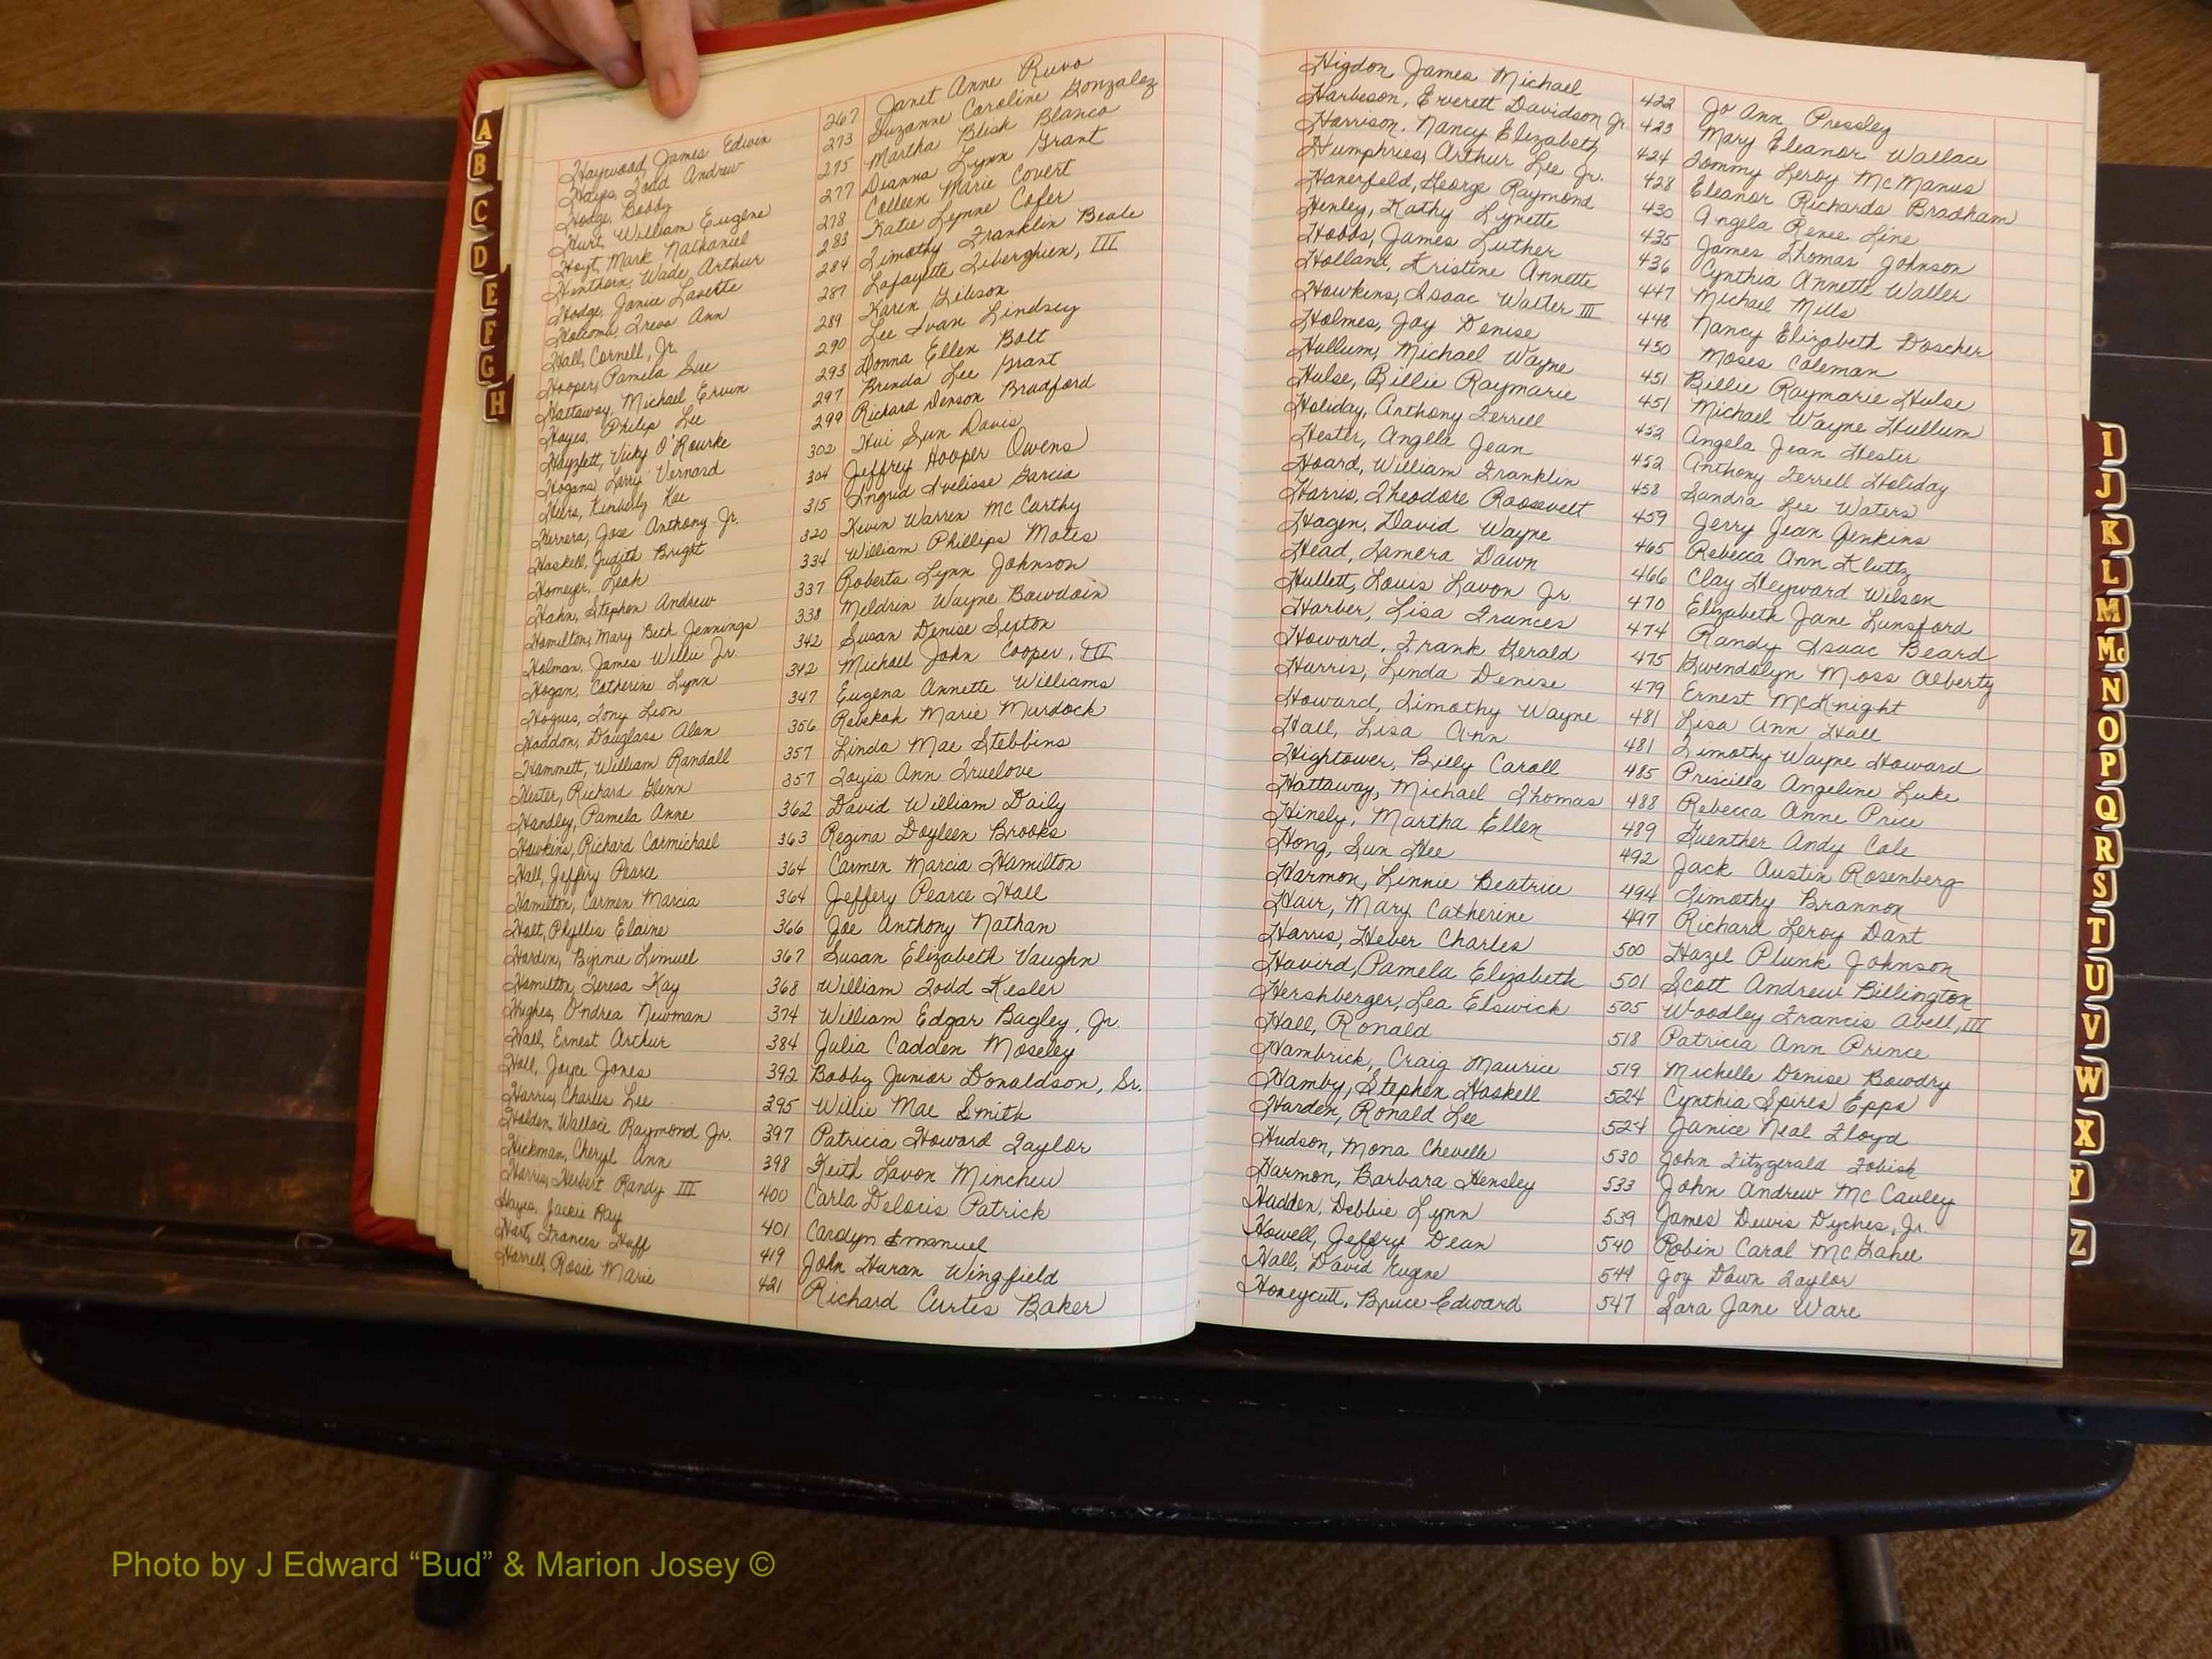 A
B
C
D
E
F
G
H
Haywood, James Edwin 267 Janet Anne Ruvo
Hays, Todd Andrew 273 Suzanne Caroline Gonzalez
Hodge, Bobby 275 Martha Blisk Blanco
Hurt, William Eugene 277 Dianna Lynn Grant
Hoyt, Mark Nathaniel 278 Colleen Marie Covert
Hinthorn, Wade Arthur 283 Katie Lynne Cofer
Hodge, Janice Laverte 284 Timothy Franklin Beale
Holcomb, Treva Ann 287 Lafayette Tiberghien, III
Hall, Cornell, Jr. 289 Karen Gibson
Hooper, Pamela Sue 290 Lee Ivan Lindsey
Hattaway, Michael Ervin 293 Donna Ellen Bolt
Hayes, Philip Lee 297 Brenda Lee Grant
Hayzlett, Vicky O'Rourke 299 Richard Denson Bradford
Hogans, Larry Vernard 302 Hui Sun Davis
Heirs, Kimberly Kae 304 Jeffrey Hooper Owens
Herrera, Jose Anthony Jr. 315 Ingrid Ivelisse Garcia
Haskell, Judith Bright 320 Kevin Warren McCarthy
Homeyer, Leah 334 William Phillips Mates
Hahn, Stephen Andrew 337 Roberta Lynn Johnson
Hamilton, Mary Beth Jennings 338 Meldrin Wayne Bowdoin
Holman, James Willie Jr. 342 Susan Denise Sexton
Hogan, Catherine Lynn 342 Michael John Cooper, III
Hogues, Tony Leon 347 Eugena Annette Williams
Haddon, Douglass Alan 356 Rebekah Marie Murdock
Hammett, William Randall 357 Linda Mae Stebbins
Hester, Richard Glenn 357 Toyia Ann Truelove
Handley, Pamela Anne 362 David William Daily
Hawkins, Richard Carmichael 363 Regina Doyleen Brooks
Hall, Jeffery Pearce 364 Carmen Marcia Hamilton
Hamilton, Carmen Marcia 364 Jeffery Pearce Hall
Holt, Phyllis Elaine 366 Joe Anthony Nathan
Hardin, Binnie Limuel 367 Susan Elizabeth Vaughn
Hamilton, Teresa Kay 368 William Todd Kesler
Hughes, O'ndrea Newman 374 William Edgar Bagley, Jr.
Hall, Ernest Arthur 384 Julia Cadden Moseley
Hall, Joyce Jones 392 Bobby Junior Donaldson, Sr.
Harris, Charles Lee 395 Willie Mae Smith
Holden, Wallace Raymond Jr. 397 Patricia Howard Taylor
Hickman, Cheryl Ann 398 Keith Lavon Minchew
Harris, Herbert Randy III 400 Carla Deloris Patrick
Hayes, Jackie Ray 401 Carolyn Emanuel
Hart, Frances Huff 419 John Huran Wingfield
Harrell, Rosie Marie 421 Richard Curtis Baker
Higdon, James Michael 422 Jo Ann Pressley
Harbeson, Everett Davidson Jr. 423 Mary Eleanor Wallace
Harrison, Nancy Elizabeth 424 Tommy Leroy McManus
Humphries, Arthur Lee Jr. 428 Eleanor Richards Bradham
Hanerfeld, George Raymond 430 Angela Renee Line
Henley, Kathy Lynette 435 James Thomas Johnson
Hobbs, James Luther 436 Cynthia Annette Waller
Holland, Kristine Annette 447 Michael Mills
Hawkins, Isaac Walter III 448 Nancy Elizabeth Doscher
Holmes, Joy Denise 450 Moses Coleman
Hullum, Michael Wayne 451 Billie Raymarie Hulse
Hulse, Billie Raymarie 451 Michael Wayne Hullum
Holiday, Anthony Terrell 452 Angela Jean Hester
Hester, Angela Jean 452 Anthony Terrell Holiday
Hoard, William Franklin 458 Sandra Lee Waters
Harris, Theodore Roosevelt 459 Jerry Jean Jenkins
Hagen, David Wayne 465 Rebecca Ann Kluttz
Head, Tamera Dawn 466 Clay Heyward Wilson
Hullett, Louis Lavon Jr 470 Elizabeth Jane Lunsford
Harber, Lisa Frances 474 Randy Isaac Beard
Howard, Frank Gerald 475 Gwendolyn Moss Alberty
Harris, Linda Denise 479 Ernest McKnight
Howard, Timothy Wayne 481 Lisa Ann Hall
Hall, Lisa Ann 481 Timothy Wayne Howard
Hightower, Billy Caroll 485 Priscilla Angeline Luke
Hattaway, Michael Thomas 488 Rebecca Anne Price
Hinely, Martha Ellen 489 Guenther Andy Cole
Hong, Sun Hee 492 Jack Austin Rosenberg
Harmon, Linnie Beatrice 494 Timothy Brannon
Hair, Mary Catherine 497 Richard Leroy Dant
Harris, Heber Charles 500 Hazel Plunk Johnson
Havird, Pamela Elizabeth 501 Scott Andrew Billington
Hershberger, Lea Elswick 505 Woodley Francis Abell, III
Hall, Ronald 518 Patricia Ann Prince
Hambrick, Craig Maurice 519 Michelle Denise Bowdry
Hamby, Stephen Haskell 524 Cynthia Spires Epps
Harden, Ronald Lee 524 Janice Neal Floyd
Hudson, Mona Chevelle 530 John Fitzgerald Tobisk
Harmon, Barbara Hensley 533 John Andrew McCauley
Hadden, Debbie Lynn 539 James Dewis Dyches, Jr.
Howell, Jeffry Dean 540 Robin Carol McGahee
Hall, David Eugene 544 Joy Dawn Taylor
Honeycutt, Bruce Edward 547 Sara Jane Ware
I
J
K
L
M
Mc
N
O
P
Q
R
S
T
U
V
W
X
Y
Z
Photo by J Edward “Bud” & Marion Josey ©